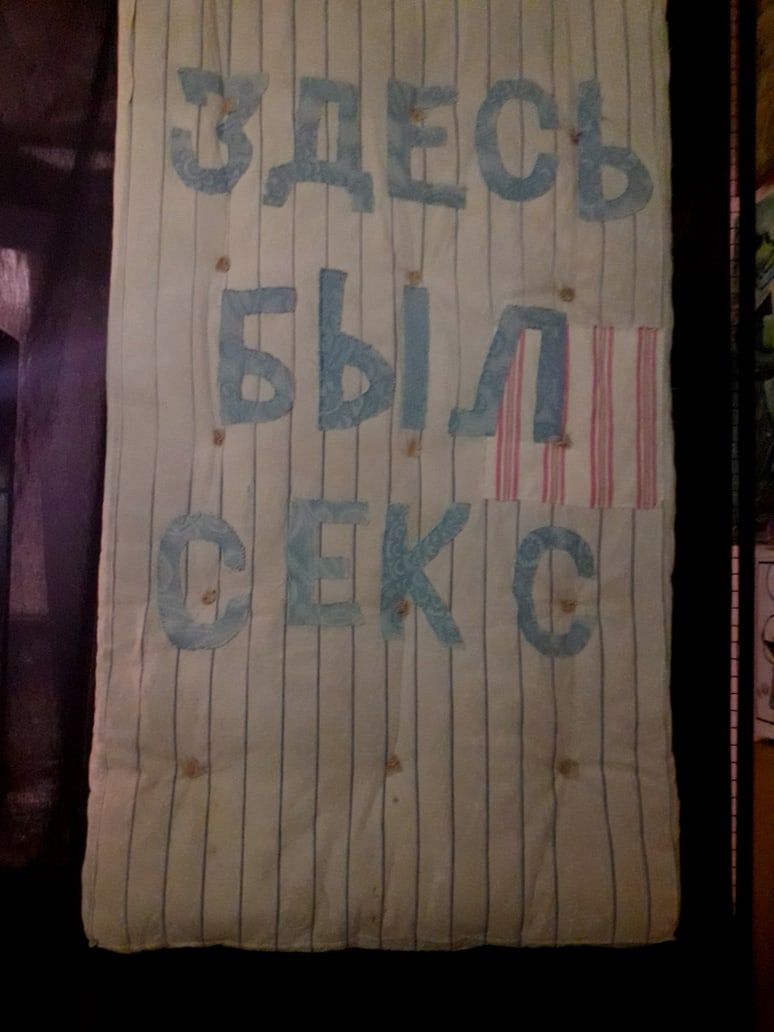 ЗДЕСЬ
БЫЛ
СЕКС